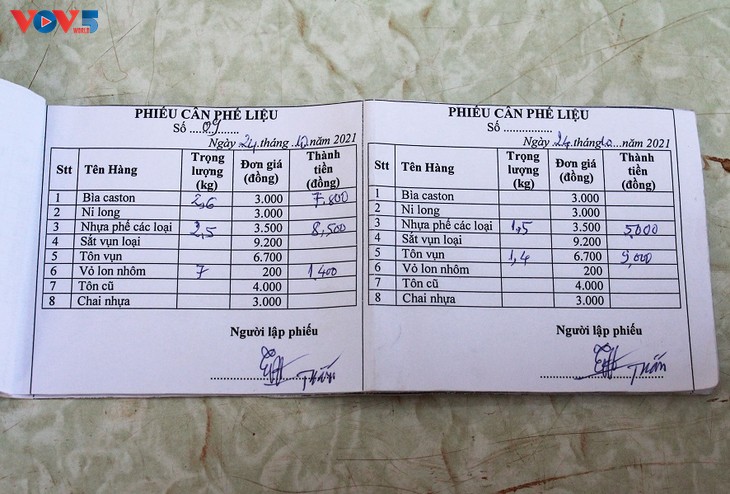 VOV5
WORLD
PHIẾU CÂN PHẾ LIỆU
Số ....09.......
Ngày 24.tháng.10.năm 2021
Stt Tên Hàng Trọng lượng (kg) Đơn giá (đồng) Thành tiền (đồng)
1 Bìa caston 2,6 3.000 7,800
2 Ni long 3.000
3 Nhựa phế các loại 2,5 3.500 8,500
4 Sắt vụn loại 9.200
5 Tôn vụn 6.700
6 Vỏ lon nhôm 7 200 1,400
7 Tôn cũ 4.000
8 Chai nhựa 3.000
Người lập phiếu
Tuấn
PHIẾU CÂN PHẾ LIỆU
Số ...............
Ngày 24.tháng10...năm 2021
Stt Tên Hàng Trọng lượng (kg) Đơn giá (đồng) Thành tiền (đồng)
1 Bìa caston 3.000
2 Ni long 3.000
3 Nhựa phế các loại 1,5 3.500 5,000
4 Sắt vụn loại 9.200
5 Tôn vụn 1,4 6.700 9,000
6 Vỏ lon nhôm 200
7 Tôn cũ 4.000
8 Chai nhựa 3.000
Người lập phiếu
Tuấn